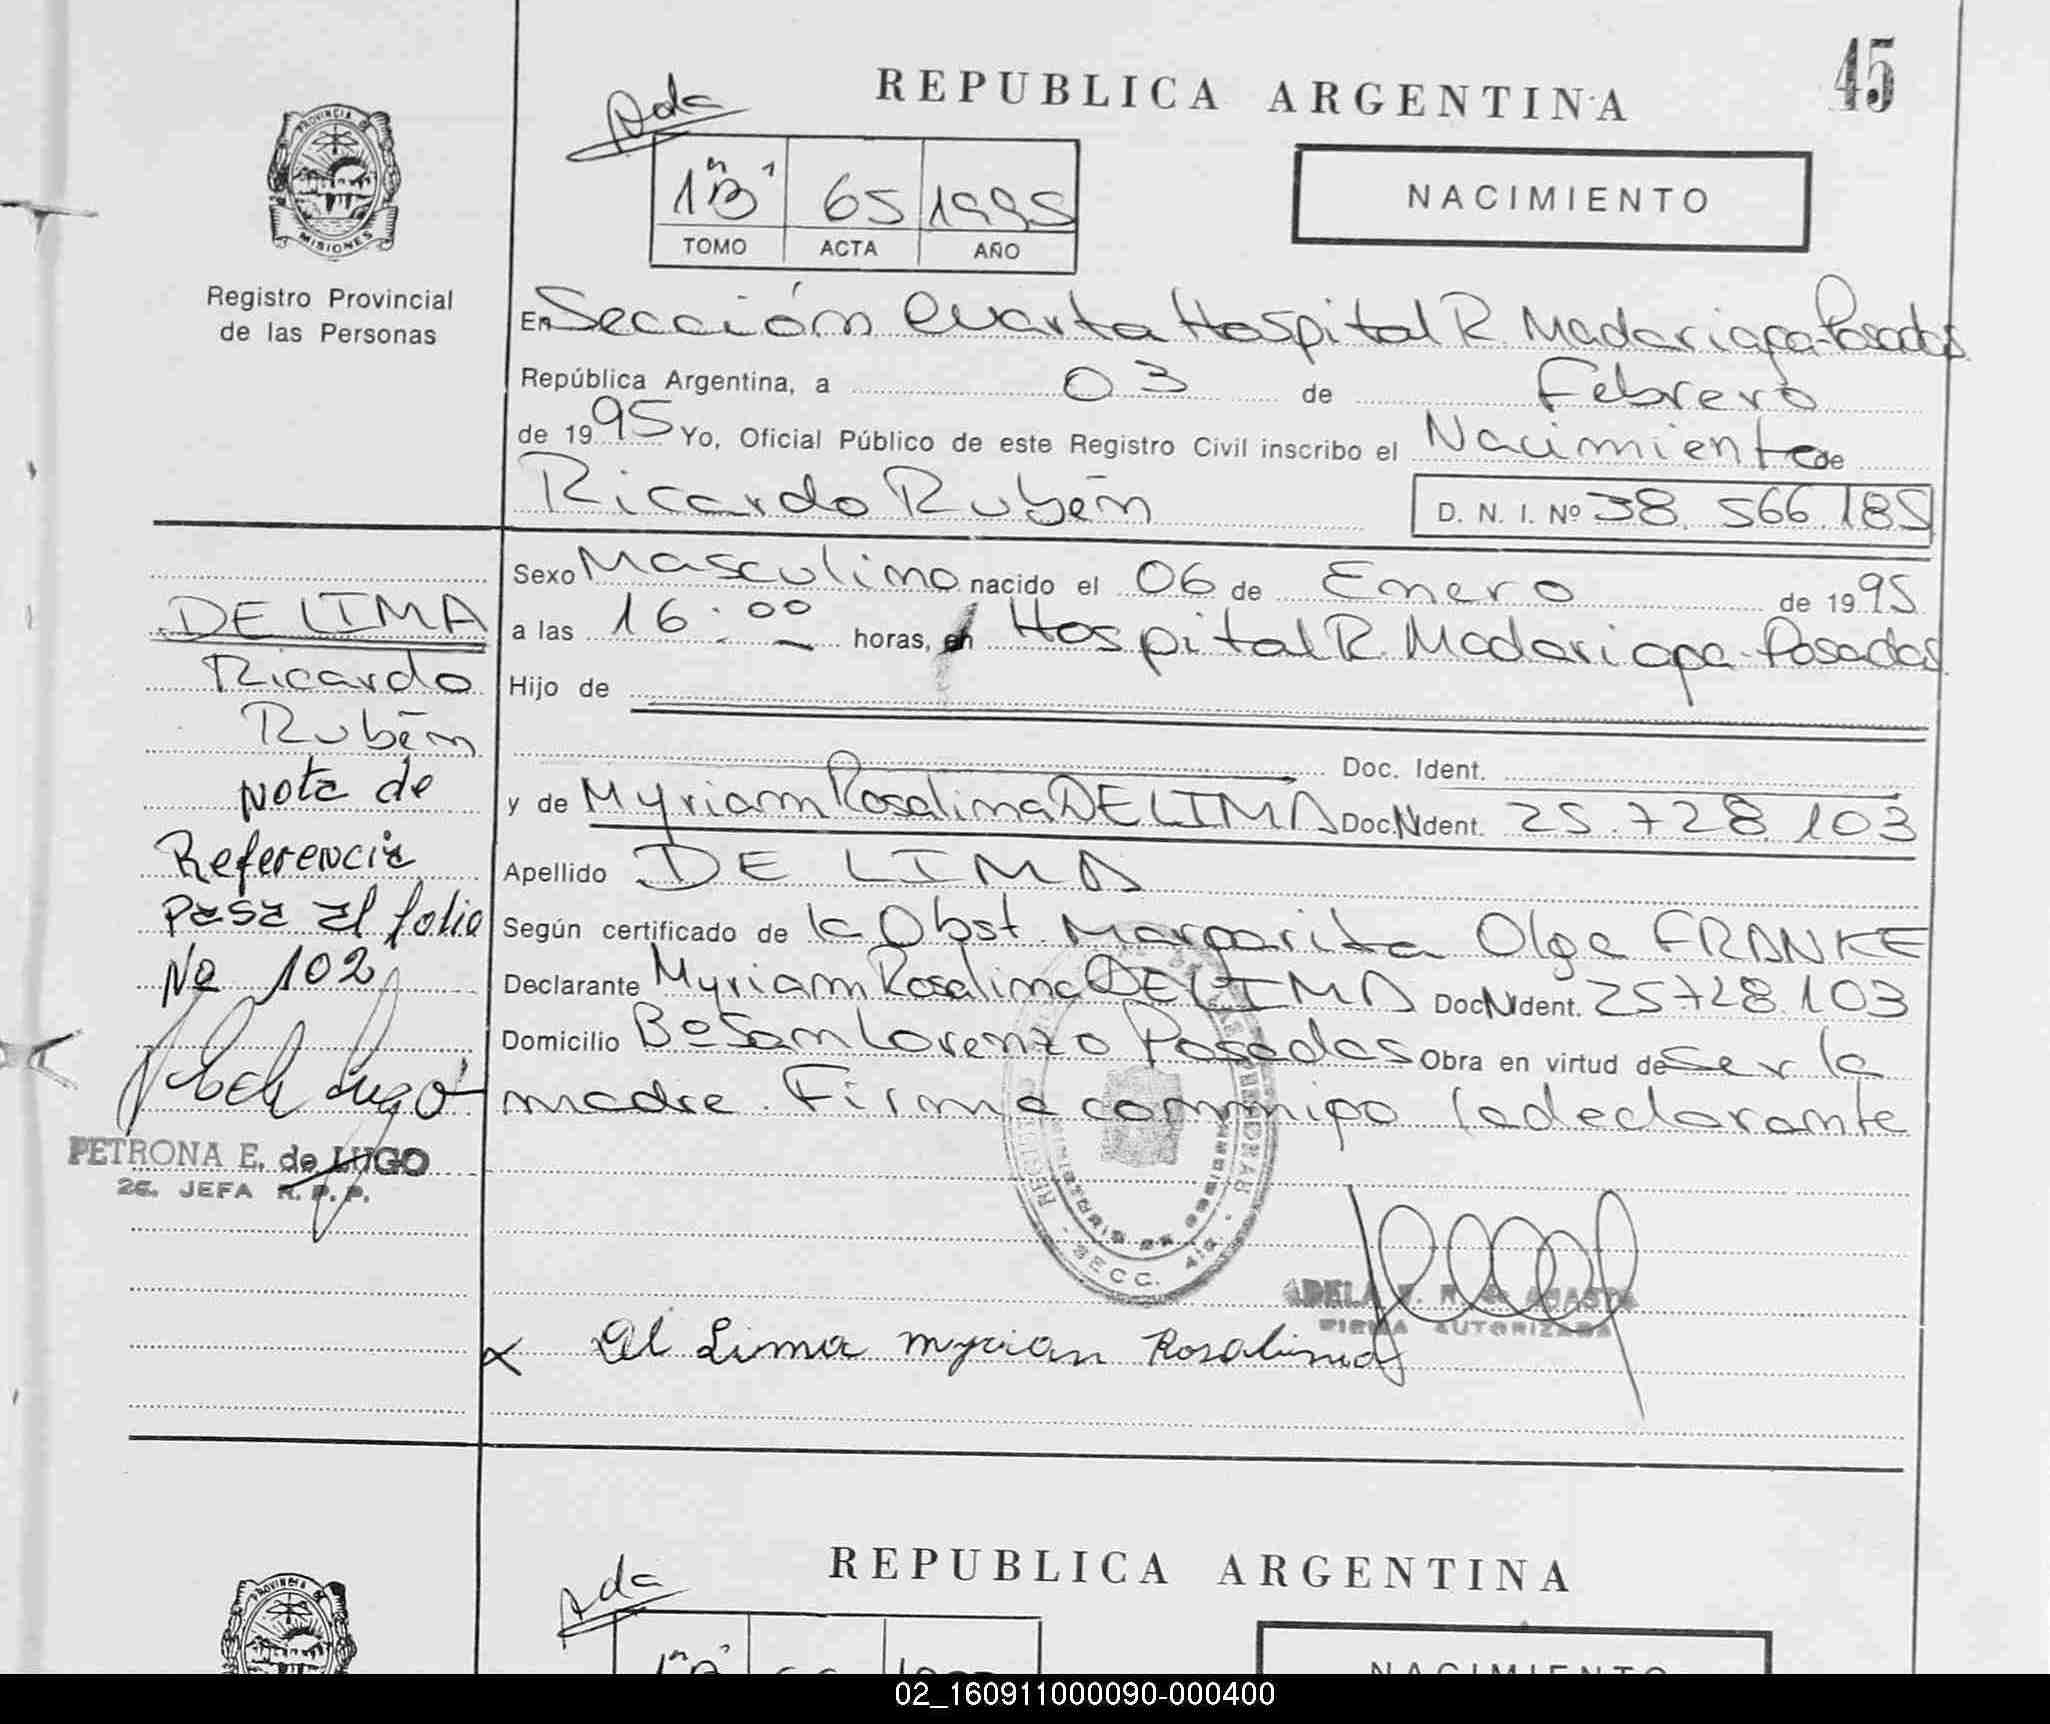 45
REPUBLICA ARGENTINA
Ada
1"B" 65 1995
TOMO ACTA AÑO
NACIMIENTO
PROVINCIA DE
MISIONES
Registro Provincial
de las Personas
En Sección Cuarta Hospital R. Madariaga-Posadas
República Argentina, a 03 de Febrero
de 1995 Yo, Oficial Público de este Registro Civil inscribo el Nacimiento de
Ricardo Rubén D. N. I. Nº 38.566.185
Sexo Masculino nacido el 06 de Enero de 1995
a las 16:00 horas, en Hospital R. Madariaga-Posadas
Hijo de
Doc. Ident.
y de Myriam Rosalina DE LIMA Doc. Ident. N 25.728.103
Apellido DE LIMA
Según certificado de la Obst. Margarita Olga FRANKE
Declarante Myriam Rosalina DE LIMA Doc. Ident. N 25.728.103
Domicilio Bº San Lorenzo Posadas Obra en virtud de ser la
madre. Firma conmigo la declarante
DE LIMA
Ricardo
Rubén
Nota de
Referencia
pasa al folio
Nº 102
PETRONA E. de LUGO
2a. JEFA R. P. P.
SECC. 4ta.
FIRMA AUTORIZADA
x de Lima Myrian Rosalina
REPUBLICA ARGENTINA
Ada
PROVINCIA DE
NACIMIENTO
02_160911000090-000400